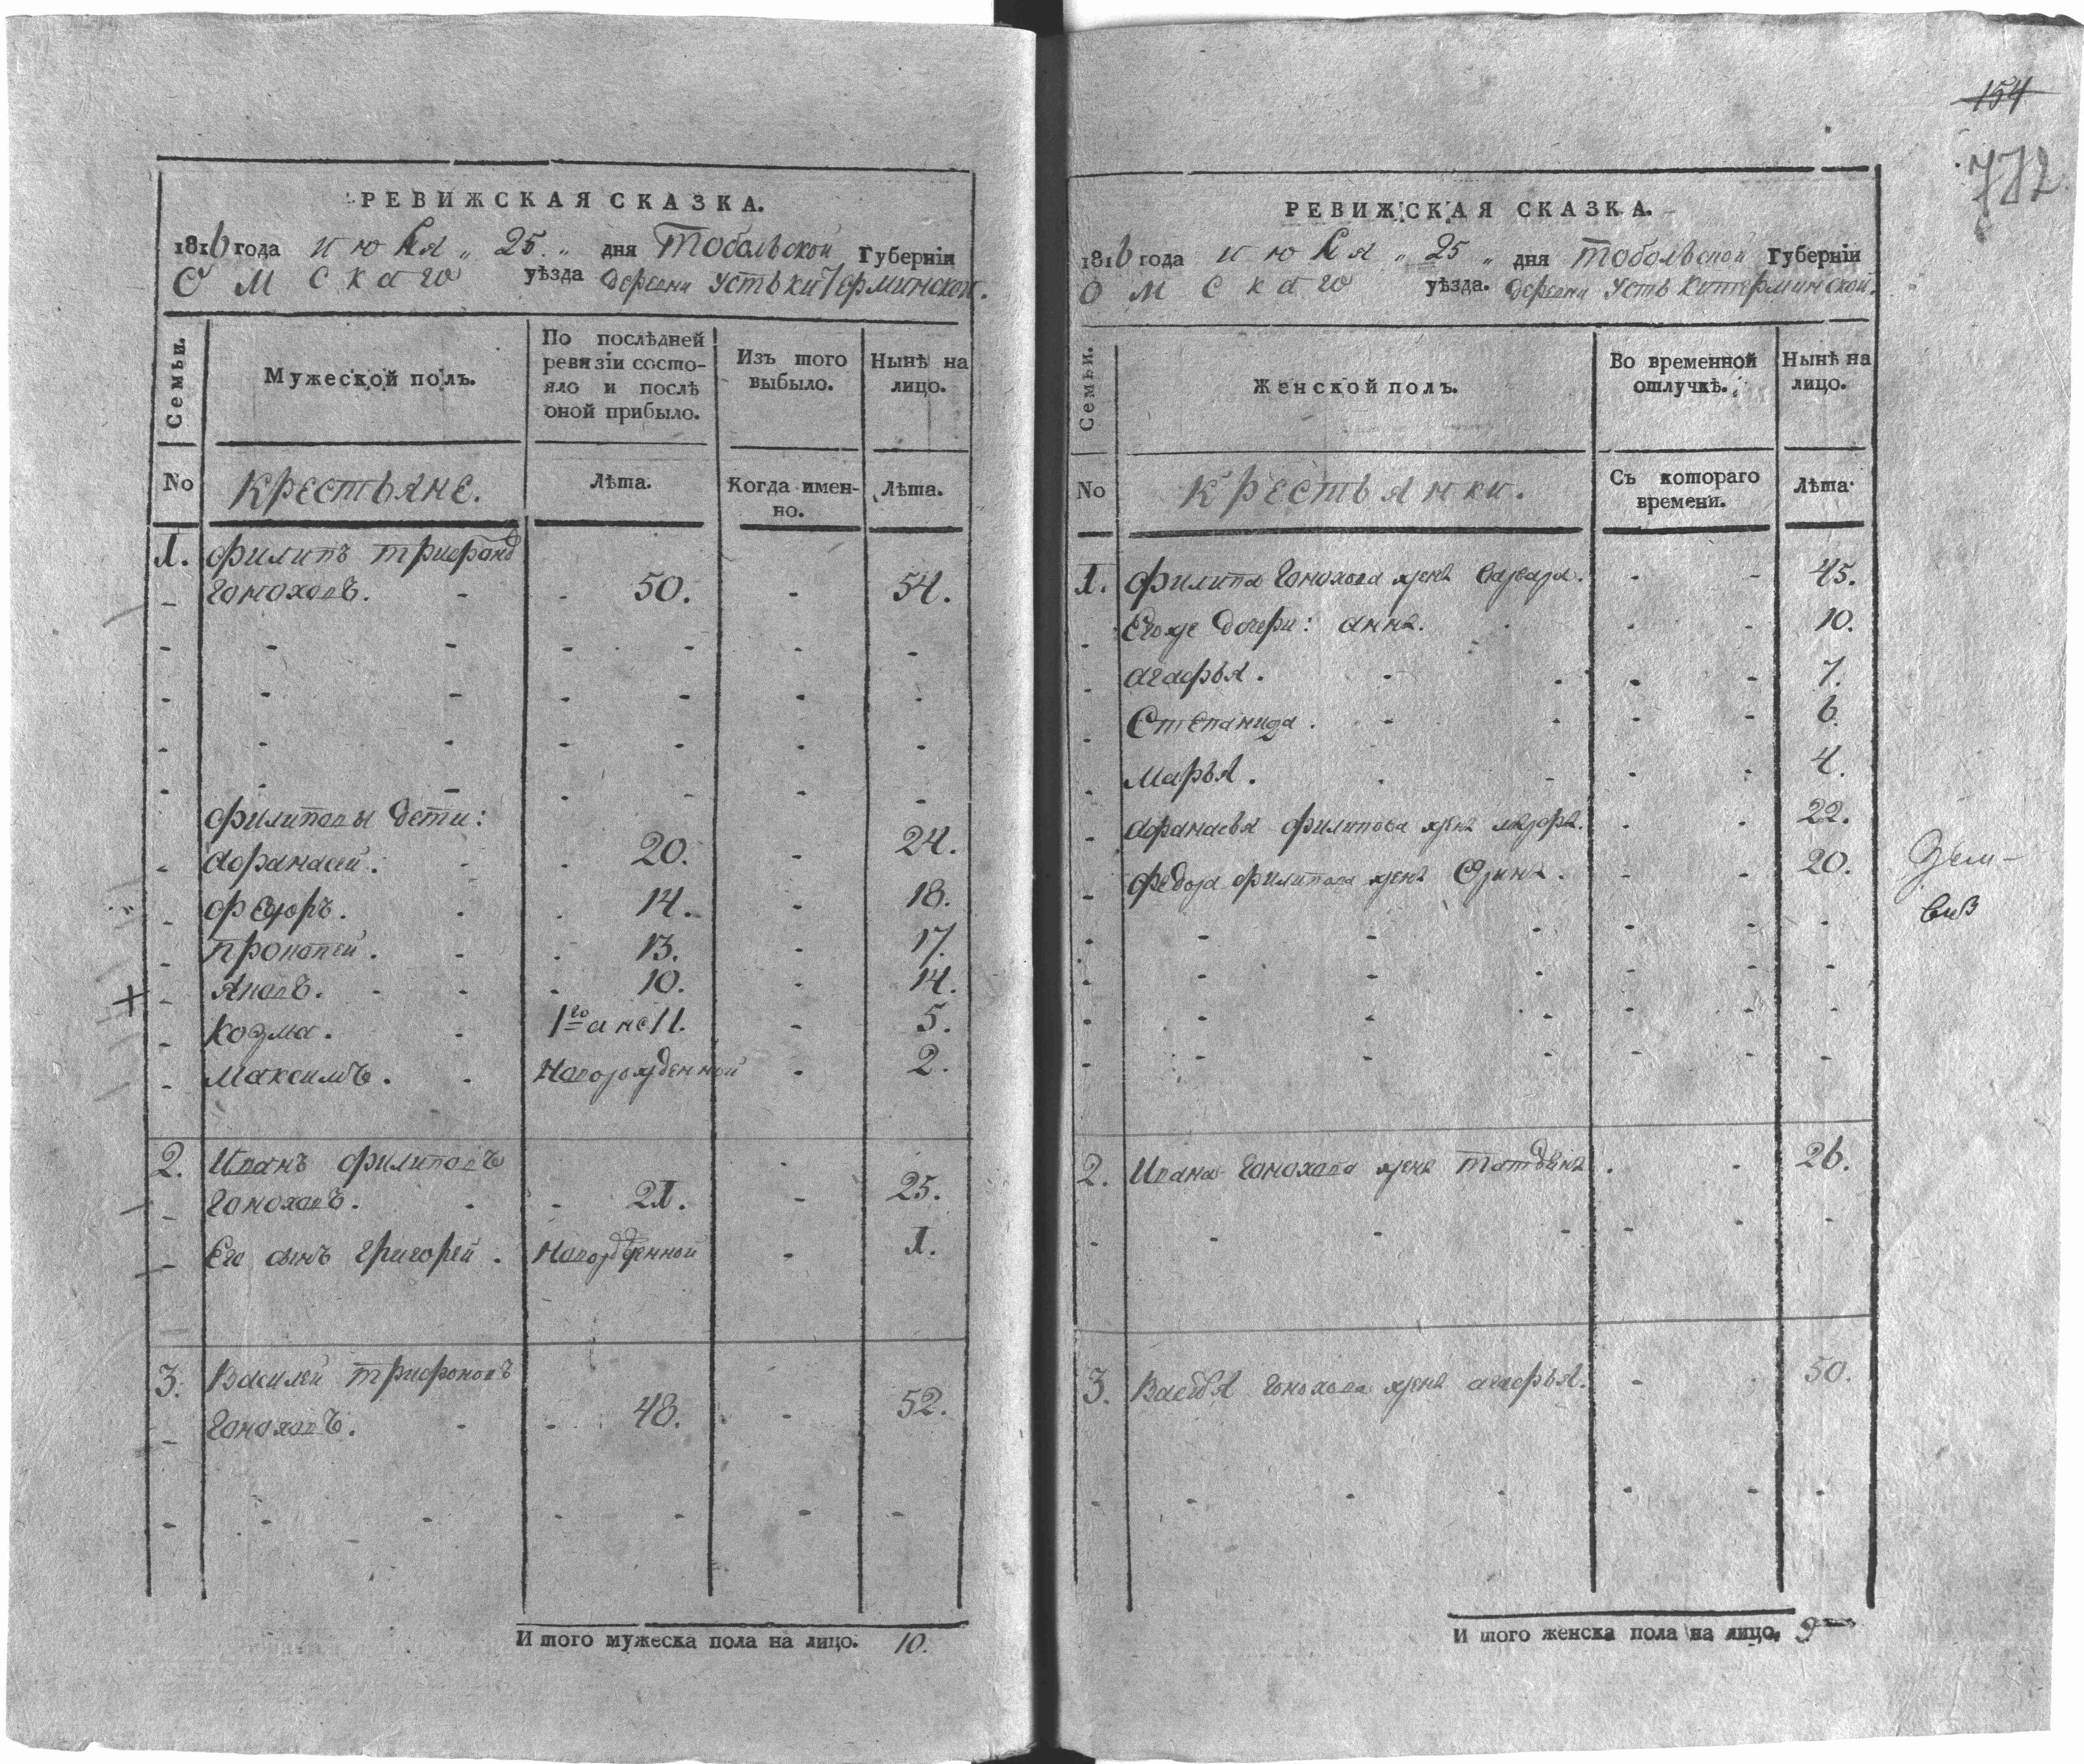 РЕВИЖСКАЯ СКАЗКА.
1816 года июля „ 25 „ дня Тобольской Губерніи
Омскаго уѣзда деревни Усть Китерминской.
Семьи.
Мужеской полъ.
По послѣдней ревизіи состо-
яло и послѣ оной прибыло.
Изъ того выбыло.
Нынѣ на лицо.
No
Крестьяне.
Лѣта.
Когда имен-
но.
Лѣта.
1. Филипъ Трифоновъ
Гоноховъ. 50. 54.
Филиповы дети:
Афанасей. 20. 24.
Федоръ. 14. 18.
Прокопей. 13. 17.
Яковъ. 10. 14.
Козма. 1го а не 11. 5.
Максимъ. Новорожденной 2.
2. Иванъ Филиповъ
Гоноховъ. 21. 25.
Его сынъ Григорей. Новорожденной 1.
3. Василей Трифоновъ
Гоноховъ. 48. 52.
И того мужеска пола на лицо. 10.
154
782
РЕВИЖСКАЯ СКАЗКА.
1816 года июля „ 25 „ дня Тобольской Губерніи
Омскаго уѣзда. деревни Усть Китерминской.
Семьи.
Женской полъ.
Во временной
отлучкѣ.
Нынѣ на
лицо.
No
Крестьянки.
Съ котораго
времени.
Лѣта.
1. Филипа Гонохова жена Варвара. 45.
Его же дочери: Анна. 10.
Агафья. 7.
Степанида. 6.
Марья. 4.
Афанасья Филипова жена 22.
Федора Филипова жена 20.
2. Ивана Гонохова жена Татьяна 26.
3. Василья Гонохова жена Агафья. 50.
И того женска пола на лицо. 9